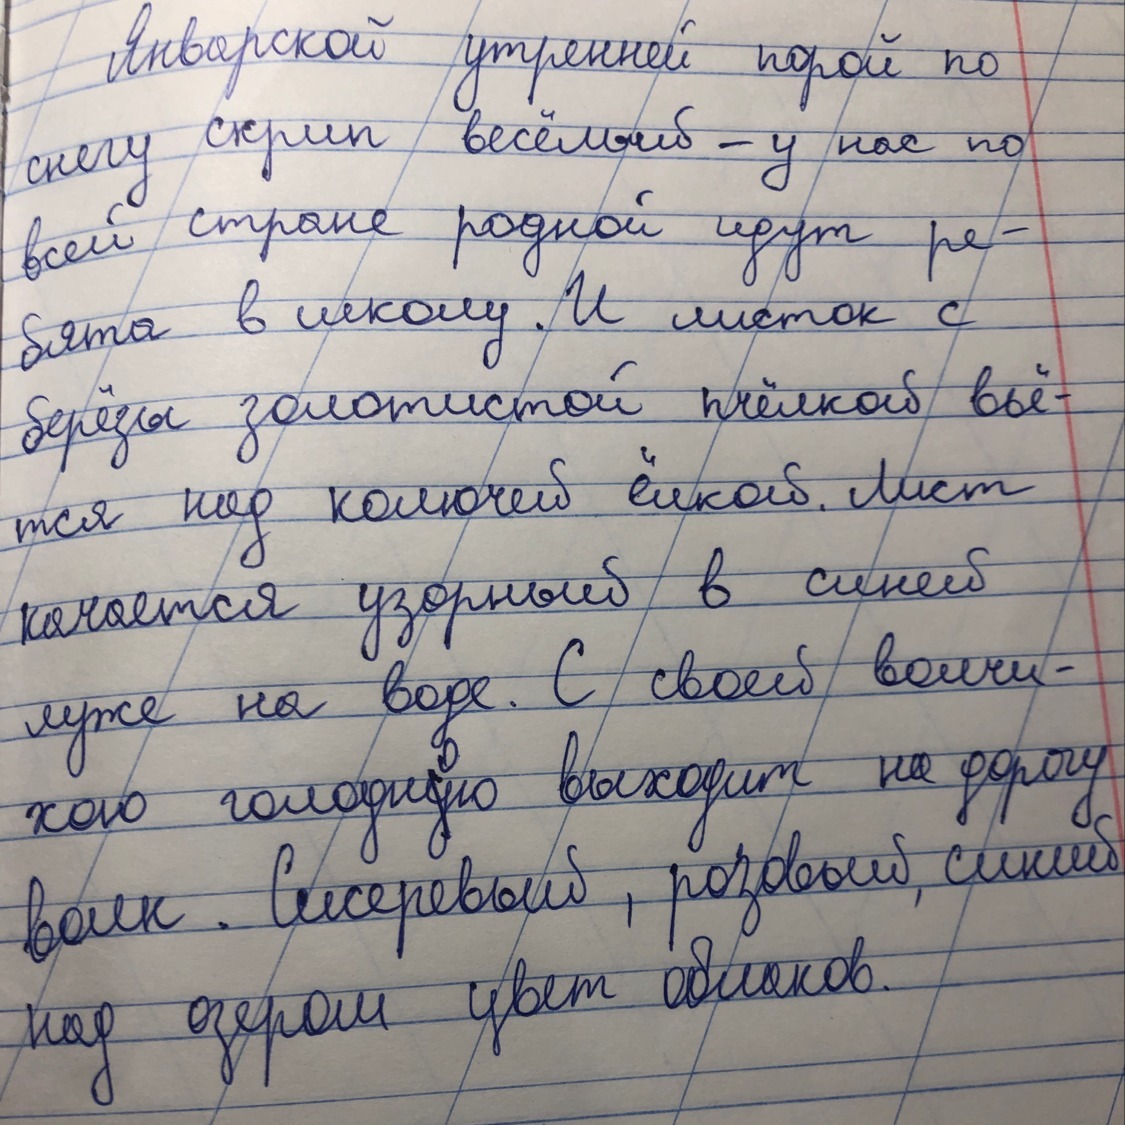 Январской утренней порой по
снегу скрип весёлый – у нас по
всей стране родной идут ре-
бята в школу. И листок с
берёзы золотистой пчёлкой вьё-
тся над колючей ёлкой. Лист
качается узорный в синей
луже на воде. С своей волчи-
хою голодною выходит на дорогу
волк. Сиреневый, розовый, синий
над озером цвет облаков.